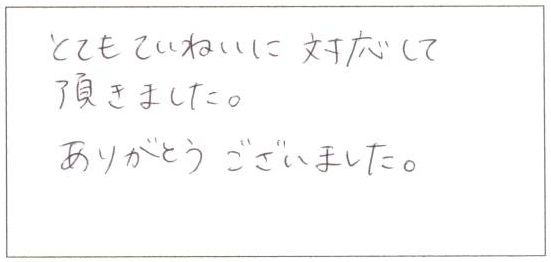 とてもていねいに 対応して
頂きました。
ありがとう ございました。